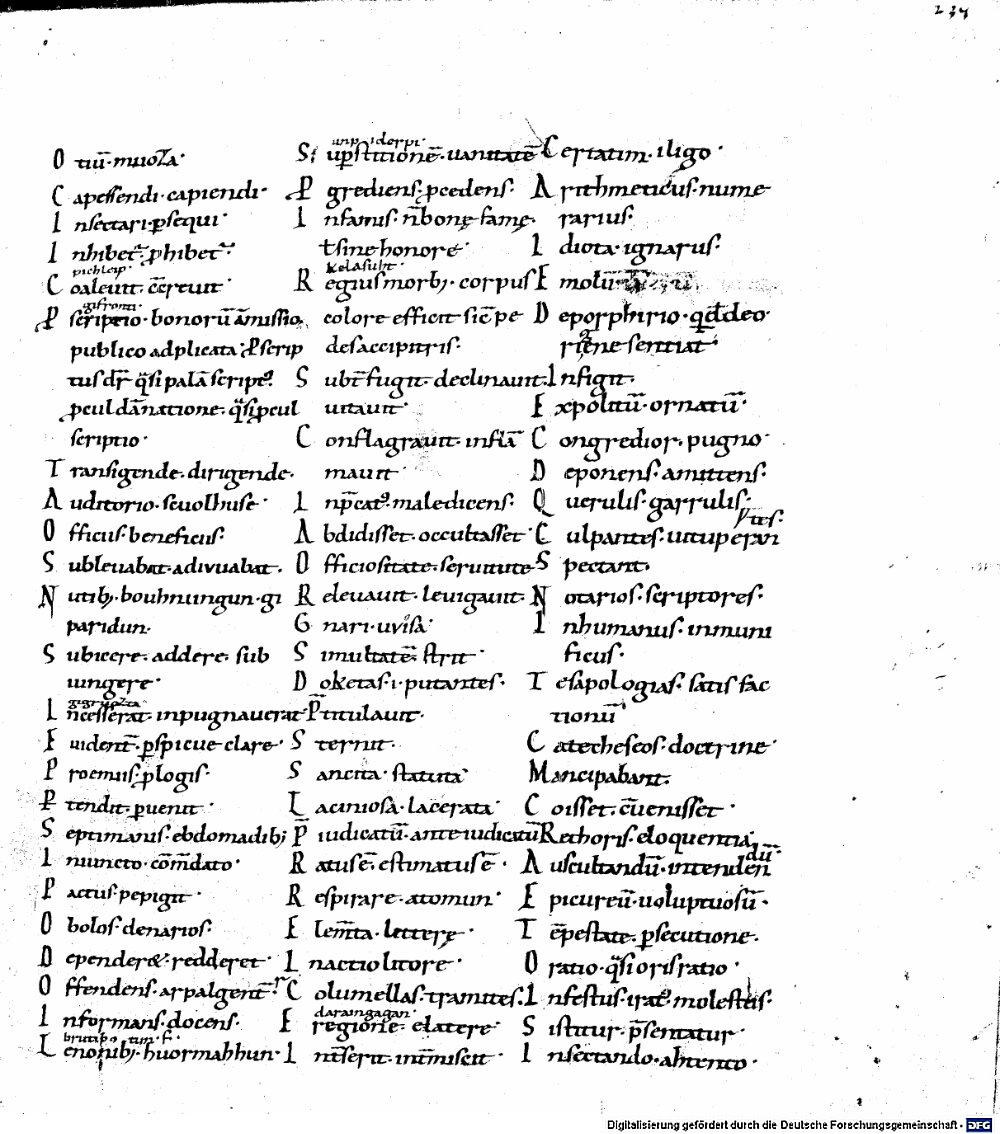 234
O tiū· muoza·
C apessendi· capiendi·
I nsectari· ꝑsequi·
I nhibet᷑· ꝓhibet᷑·
pichleip·
C oaleuit· c̄creuit·
gifronti·
P scriptio· bonorū āmissio
publico adplicata· P̄scrip
tus dr̄ q̄si palā script᷒·
ꝓcul dānatione· q̄si ꝓcul
scriptio·
T ransigende· dirigende·
A uditorio· sc̄uolhuse·
O fficus· beneficus·
S ubleuabat· adiuuabat·
N utib;· bouhnungun· gi
paridun·
S ubicere· addere· sub
iungere·
I ncesserat· inpugnauerat
E uident̄· ꝑspicue clare·
P roemiis· ꝓlogis·
P̄ tendit· ꝑuenit·
S eptimanis· ebdomadib;
I niuncto· cōm̄dato·
P actus· pepigit·
O bolos· denarios·
D epender&· redderet·
O ffendens· arpalgent᷑·
I nformans· docens·
L enonib;· huormahhun·
S upstitionē· uanitatē
P̄ grediens· p̄cedens·
I nfamis· n̄ bonę famę·
ł sine honore·
kelasuht·
R egius morb;· corpus
colore efficit sic̄ pe
des accipitris·
S ubt̄fugit· declinauit·
uitauit·
C onflagrauit· inflā
mauit·
I np̄cat᷒· maledicens·
A bdidisset· occultasset·
O fficiositate· seruitute
R eleuauit· leuigauit·
G nari· uvisa·
S imultatē· strit·
D oketas· i· putantes·
P̄ titulauit·
S ternit·
S ancita· statuta·
L aciniosa· lacerata·
P̄ iudicatū· ante iudicatū
R atus ē· estimatus ē·
R espirare· atomun·
E lem̄ta· letterę·
I n actio litore·
C olumellas· tramites·
daraingagan·
E regione· elatere·
I nt̄serit· int̄miscit·
C ertatim· iligo·
A rithmeticus· nume
rarius·
I diota· ignarus·
E molū
D eporphirio· qd̄ deo
riene sentiat·
I nfigit·
E xpolitū· ornatū·
C ongredior· pugno·
D eponens· amittens·
Q uerulis· garrulis·
C ulpantes· uituperan
tes·
S pectant·
N otarios· scriptores·
I nhumanus· inmuni
ficus·
T esapologias· satis fac
tionū·
C atecheseos· doctrine·
Mancipabant·
C oisset· c̄uenisset·
Rethoris· eloquentia·
A uscultandū· intenden
dū·
E picureū· uoluptuosū·
T ēpestate· ꝑsecutione·
O ratio· q̄si oris ratio·
I nfestus· irat᷒· molestus·
S istitur· p̄sentatur·
I nsectando· ahtento·
Digitalisierung gefördert durch die Deutsche Forschungsgemeinschaft - DFG